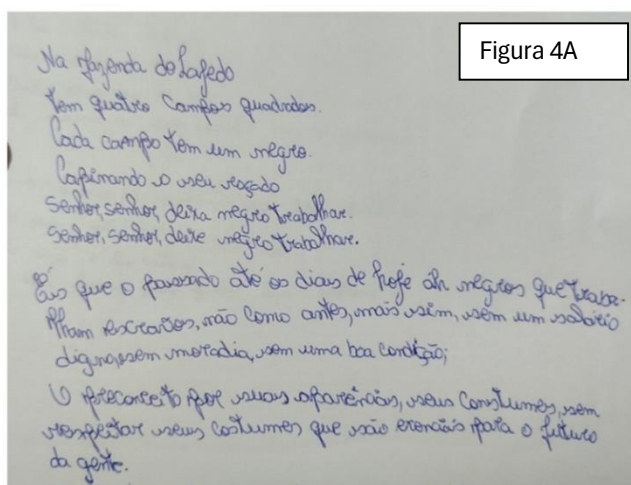 Figura 4A
Na fazenda do Lajedo
tem quatro campos quadrados.
Cada campo tem um negro.
Capinando o seu roçado
Senhor, senhor, deixa negro trabalhar.
Senhor, senhor, deixe negro trabalhar.
Eis que o passado até os dias de hoje áh negros que traba-
lham escravos, não como antes, mais sim, sem um salário
digno, sem moradia, sem uma boa condição;
O preconceito por suas aparências, seus constumes, sem
respeitar seus costumes que são erenciais para o futuro
da gente.